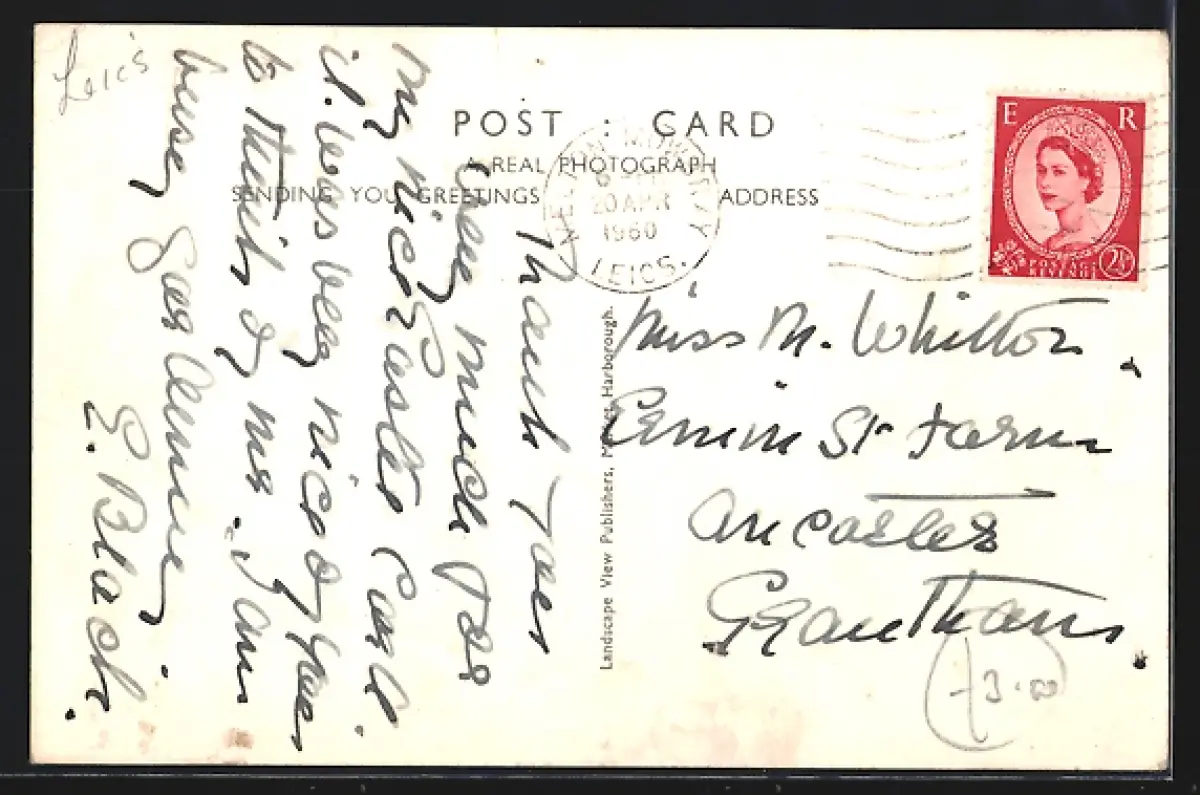 Leics
POST : CARD
A REAL PHOTOGRAPH
SENDING YOU GREETINGS
ADDRESS
MELTON MOWBRAY
20 APR
1960
LEICS.
E R
POSTAGE
REVENUE
2½
Thank you
very much for
my nice Easter Card.
it was very nice of you
to think of me. I am
busy gardening
E. Black.
Landscape View Publishers, Market Harborough.
Miss M. Whitton,
Ermin St Farm
Ancaster
Grantham.
3.00